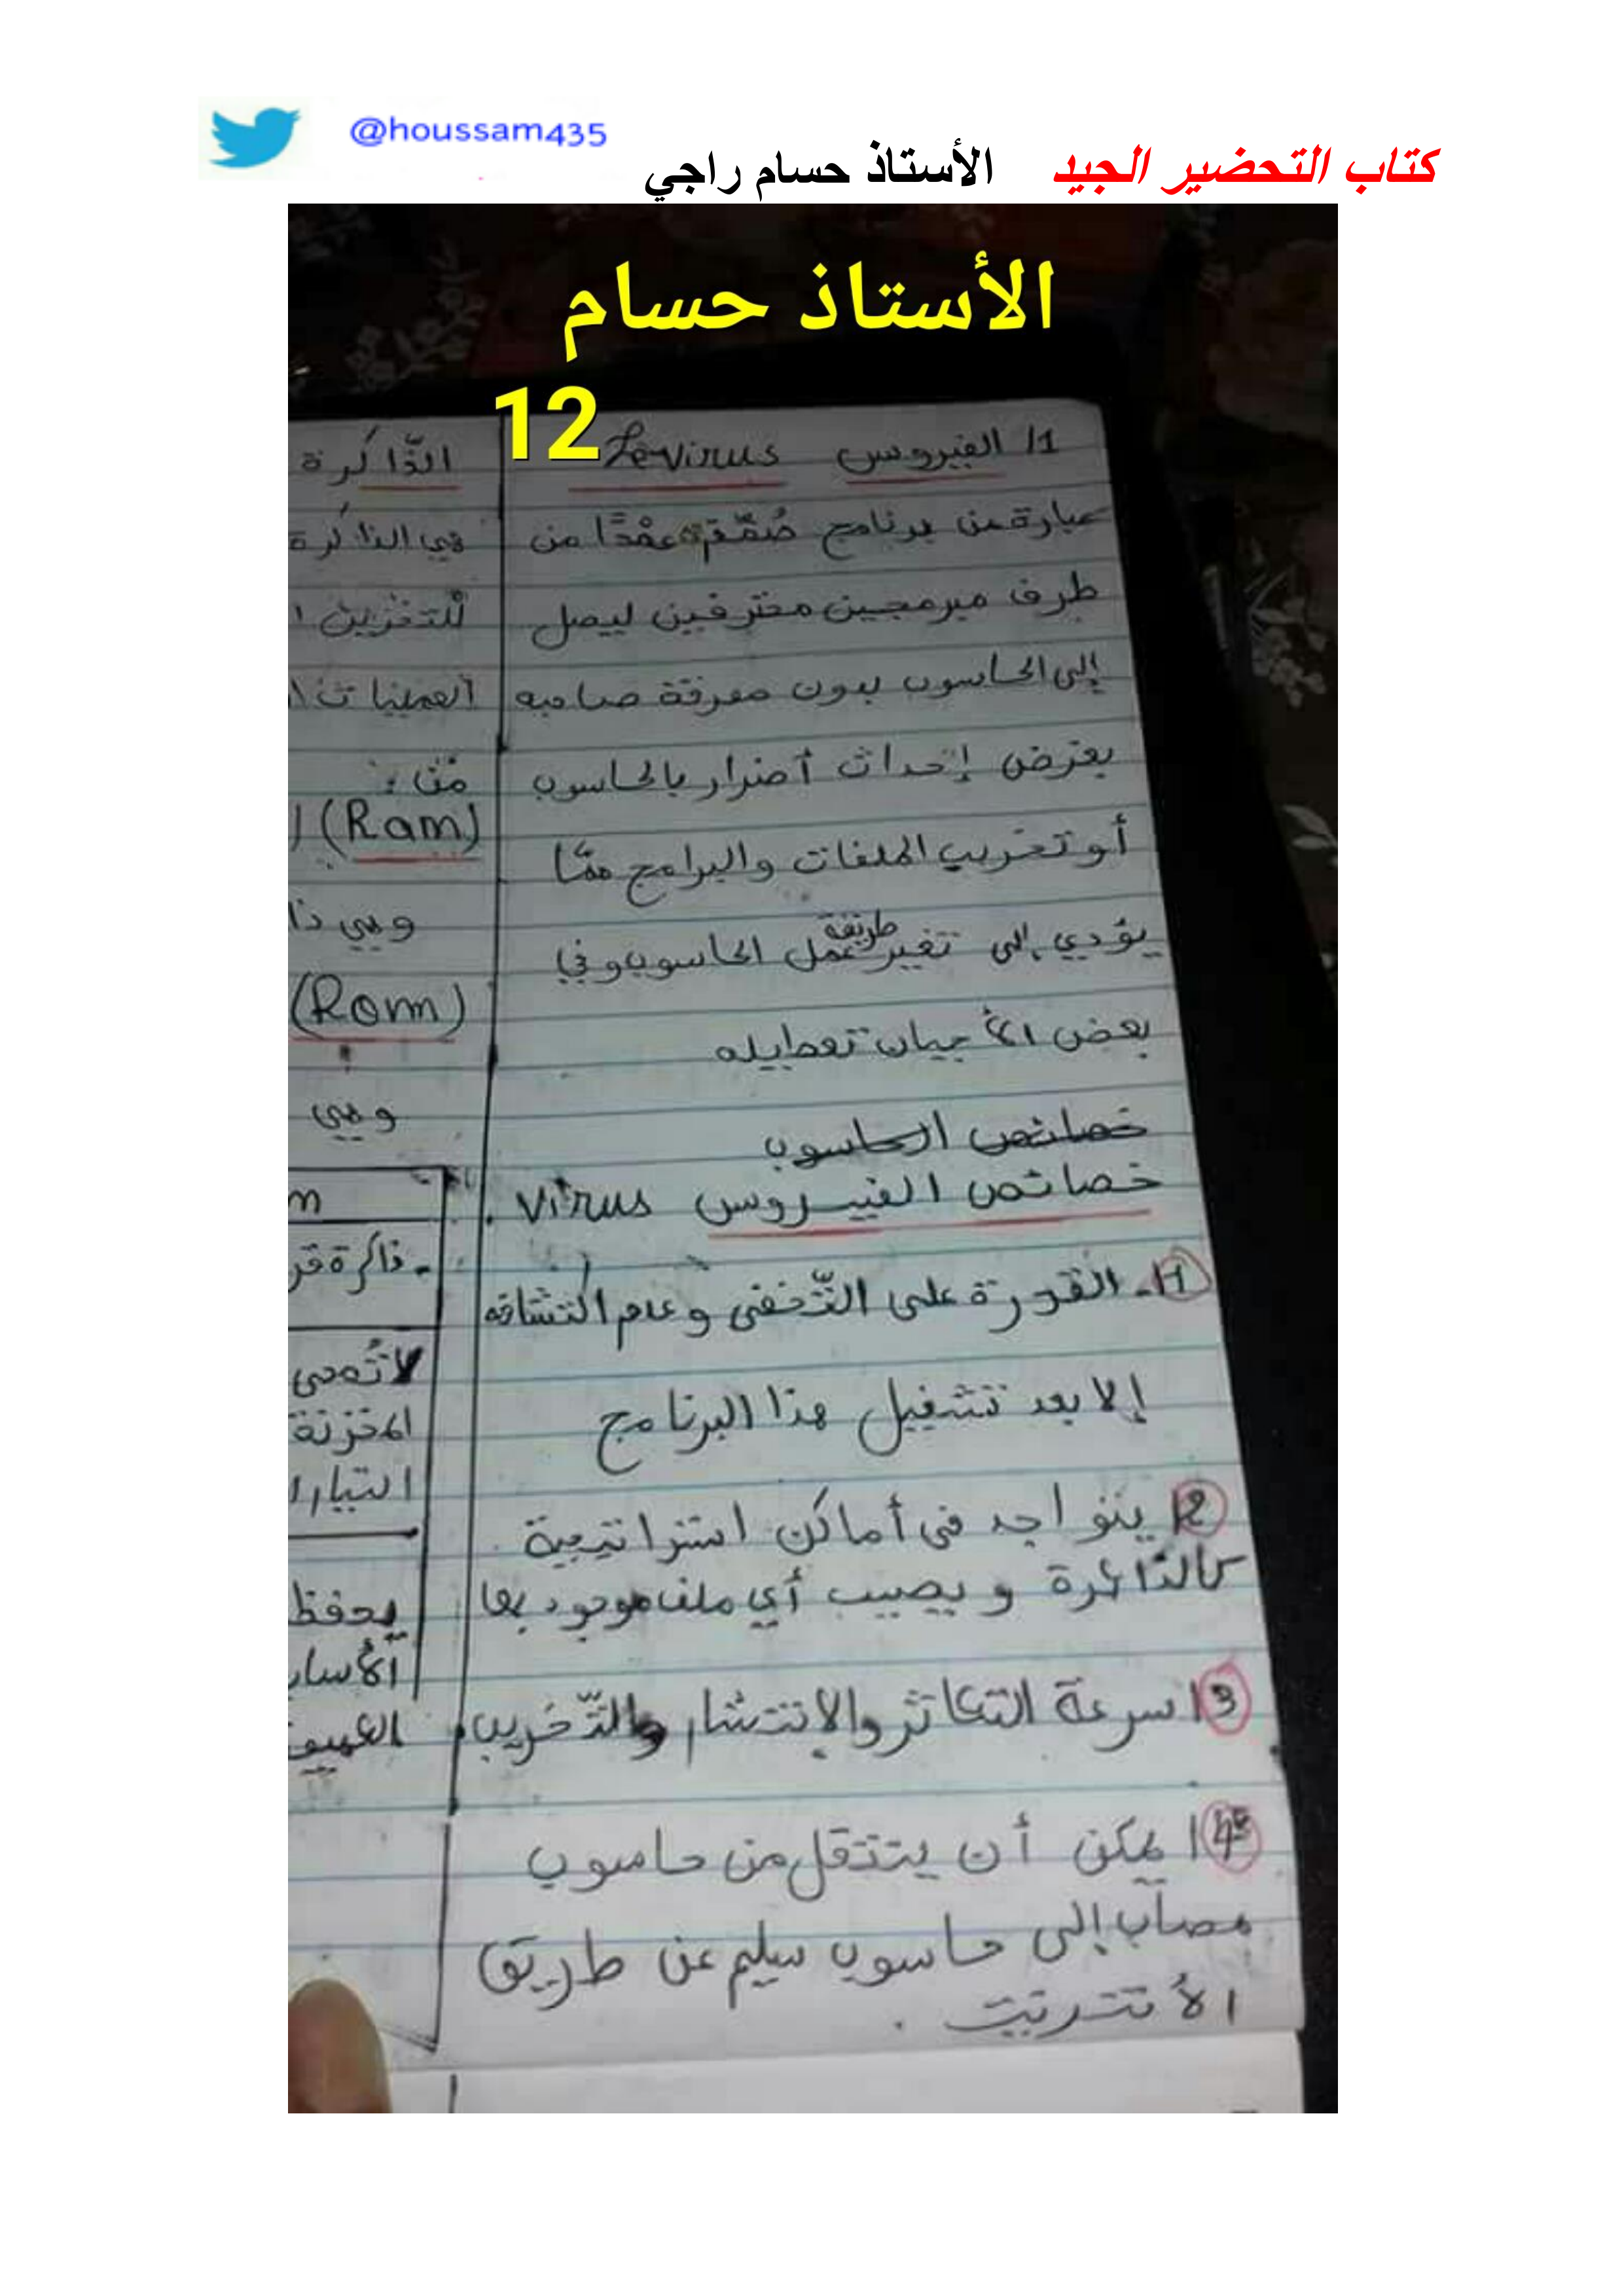 @houssam435
كتاب التحضير الجيد الأستاذ حسام راجي
الأستاذ حسام
12
1/ الفيروس Le virus
عبارة عن برنامج صُمّم عمْدًا من
طرف مبرمجين محترفين ليصل
إلى الحاسوب بدون معرفة صاحبه
بغرض إحداث أضرار بالحاسوب
أو تخريب الملفات والبرامج ممّا
يؤدي إلى تغيير طريقة عمل الحاسوب وفي
بعض الأحيان تعطيله
خصائص الحاسوب
خصائص الفيروس virus .
1- القدرة على التّخفي وعدم اكتشافه
إلا بعد تشغيل هذا البرنامج
2/ يتواجد في أماكن استراتيجية
كالذاكرة و يصيب أي ملف موجود بها
3/ سرعة التكاثر والانتشار والتّخريب
4/ يمكن أن ينتقل من حاسوب
مصاب إلى حاسوب سليم عن طريق
الأنترنيت .
الذّاكرة
هي الذاكرة
للتخزين
العمليات
من :
(Ram)
وهي
(Rom)
وهي
m
- ذاكرة
لا تُمحى
المخزنة
يحفظ